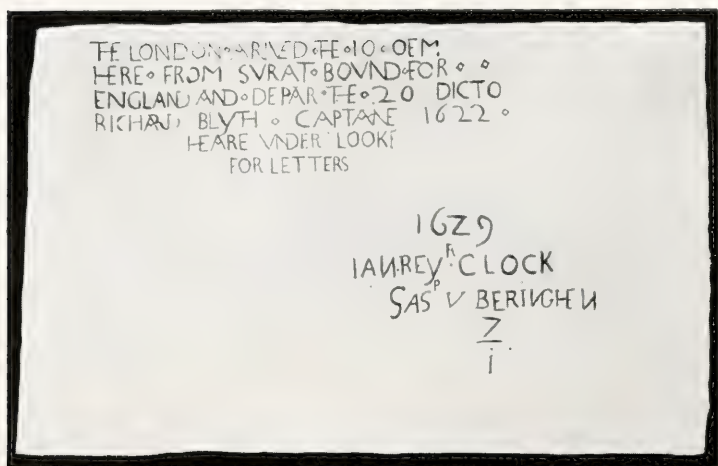 TE LONDON◦ARIVED◦TE◦10◦OF M
HERE◦FROM SVRAT◦BOVND◦FOR◦◦
ENGLAND AND◦DEPAR◦TE◦20 DICTO
RICHARD BLYTH◦CAPTANE 1622◦
HEARE VNDER LOOKE
FOR LETTERS
1629
IAN·REYᴿ·CLOCK
SASᴾ V BERINGHEN
7
i